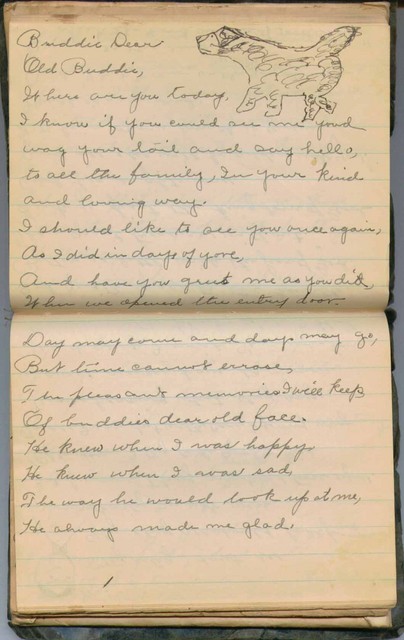 Buddie Dear
Old Buddie,
Where are you today,
I know if you could see me you'd
wag your tail and say hello,
to all the family, In your kind
and loving way.
I should like to see you once again,
As I did in days of yore,
And have you greet me as you did,
When we opened the entry door
Day may come and days may go,
But time cannot errase,
The pleasant memories I will keep
Of buddies dear old face.
He knew when I was happy,
He knew when I was sad,
The way he would look up at me,
He always made me glad.